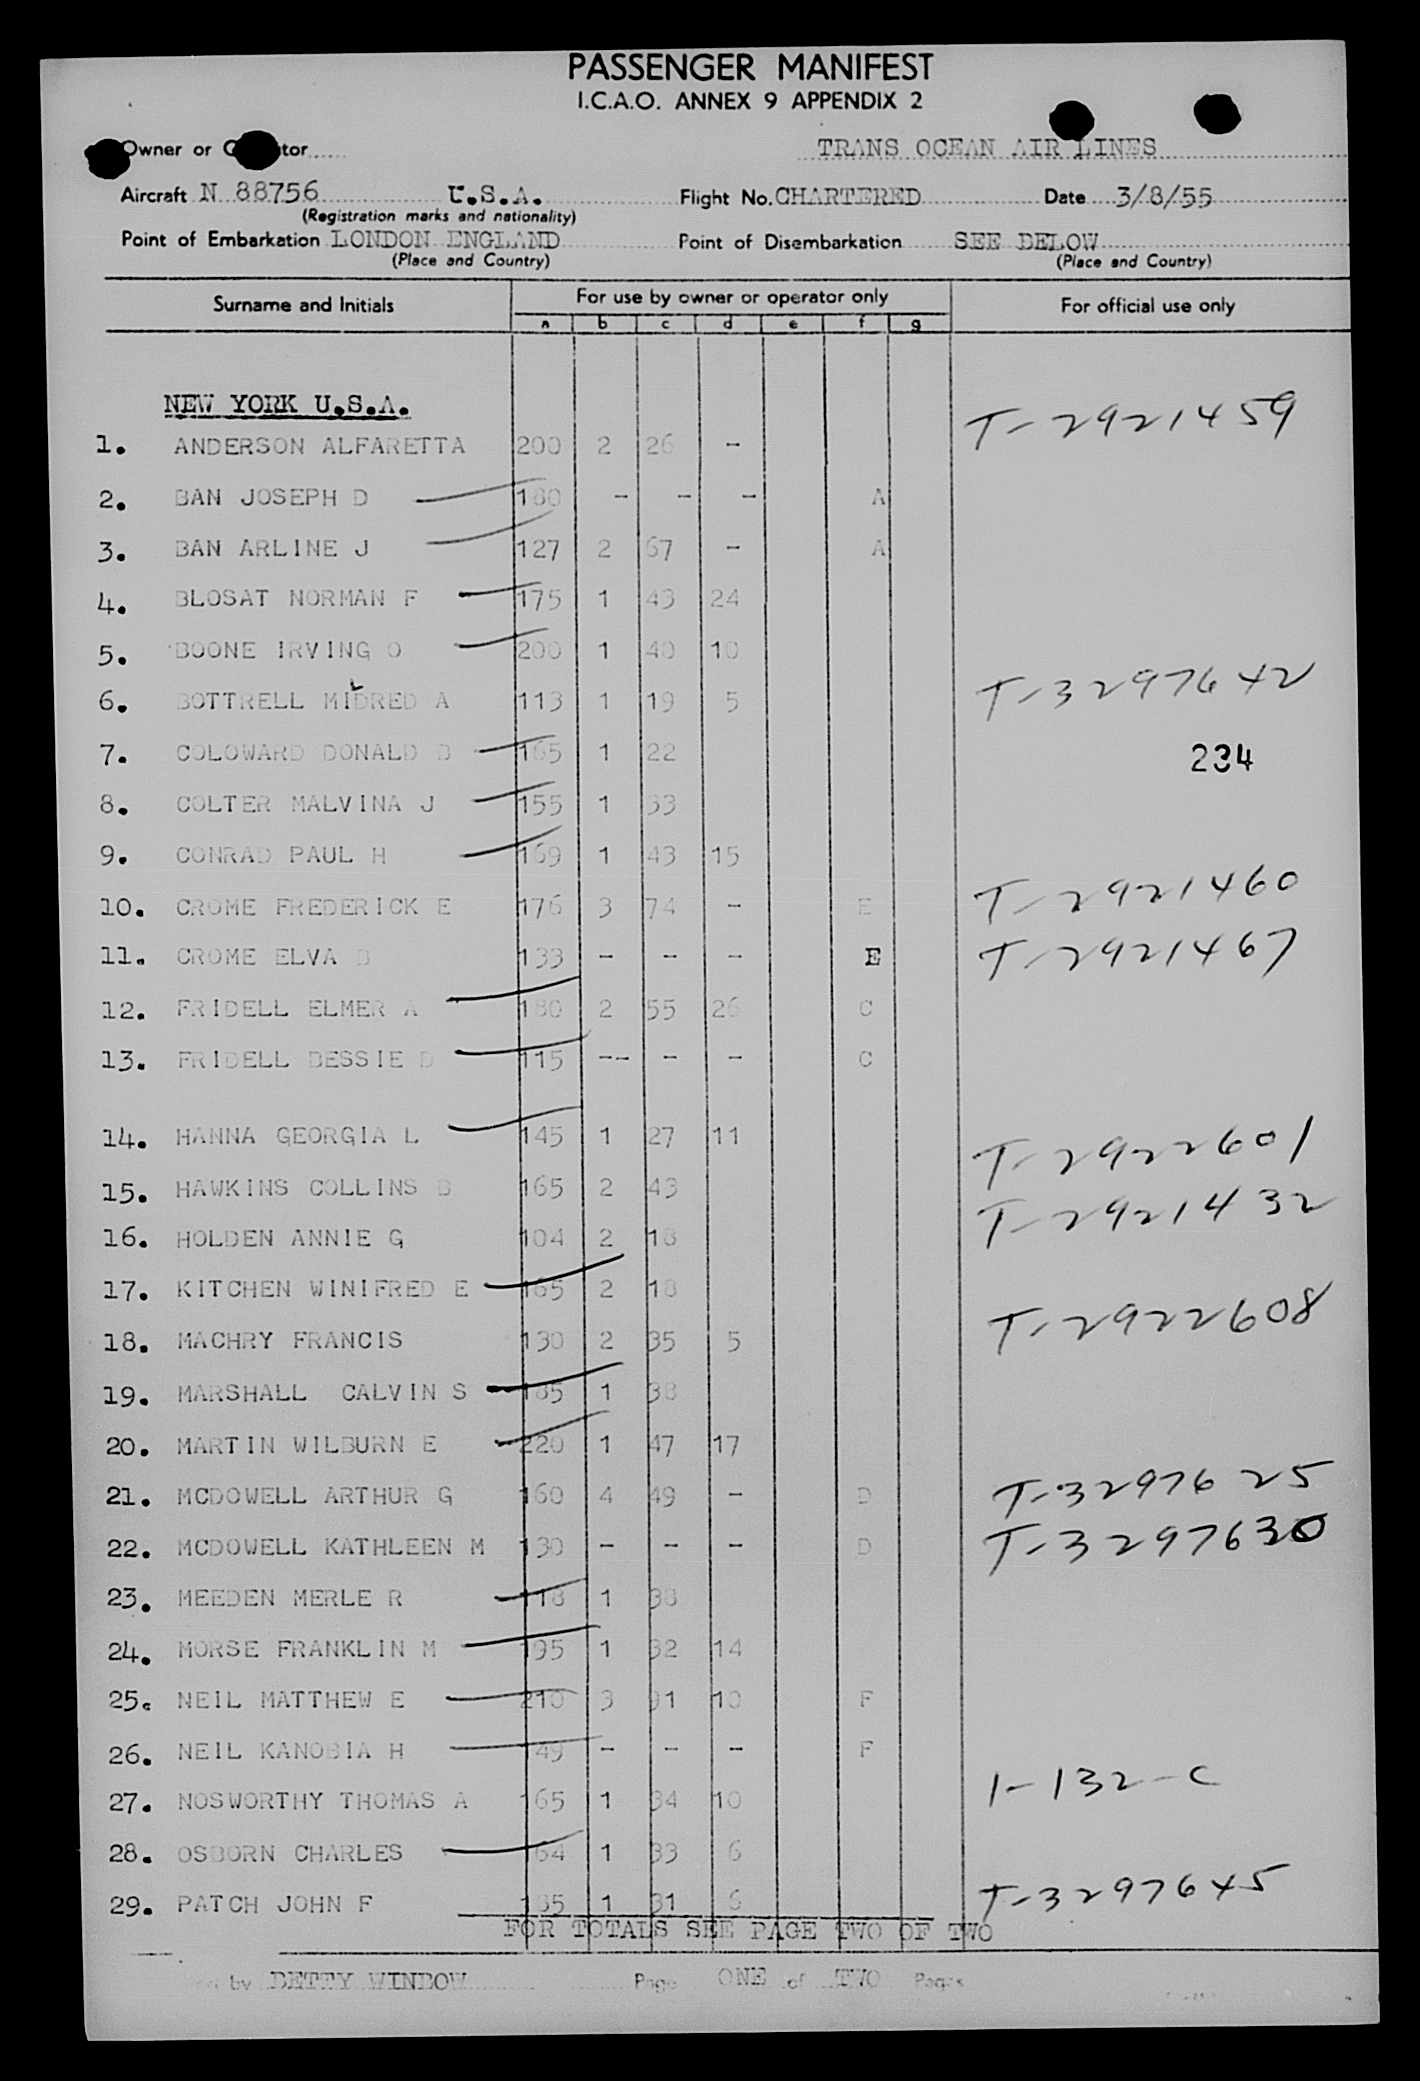 PASSENGER MANIFEST
I.C.A.O. ANNEX 9 APPENDIX 2
Owner or tor TRANS OCEAN AIR LINES
Aircraft N 88756 U.S.A. Flight No. CHARTERED Date 3/8/55
(Registration marks and nationality)
Point of Embarkation LONDON ENGLAND Point of Disembarkation SEE BELOW
(Place and Country) (Place and Country)
Surname and Initials For use by owner or operator only For official use only
a b c d e f g
NEW YORK U.S.A.
1. ANDERSON ALFARETTA 200 2 26 - T-2921459
2. BAN JOSEPH D 180 - - - A
3. BAN ARLINE J 127 2 67 - A
4. BLOSAT NORMAN F 175 1 43 24
5. BOONE IRVING O 200 1 40 10
6. BOTTRELL MILDRED A 113 1 19 5 T-3297642
7. COLOWARD DONALD B 165 1 22 234
8. COLTER MALVINA J 155 1 33
9. CONRAD PAUL H 169 1 43 15
10. CROME FREDERICK E 176 3 74 - E T-2921460
11. CROME ELVA B 133 - - - E T-2921467
12. FRIDELL ELMER A 180 2 55 26 C
13. FRIDELL BESSIE D 115 -- - - C
14. HANNA GEORGIA L 145 1 27 11
15. HAWKINS COLLINS B 165 2 43 T-2922601
16. HOLDEN ANNIE G 104 2 18 T-2921432
17. KITCHEN WINIFRED E 165 2 18
18. MACHRY FRANCIS 130 2 35 5 T-2922608
19. MARSHALL CALVIN S 185 1 38
20. MARTIN WILBURN E 220 1 47 17
21. MCDOWELL ARTHUR G 160 4 49 - D T-3297625
22. MCDOWELL KATHLEEN M 130 - - - D T-3297630
23. MEEDEN MERLE R 118 1 38
24. MORSE FRANKLIN M 195 1 32 14
25. NEIL MATTHEW E 210 3 91 10 F
26. NEIL KANOBIA H 149 - - - F
27. NOSWORTHY THOMAS A 165 1 34 10 1-132-C
28. OSBORN CHARLES 164 1 33 6
29. PATCH JOHN F 185 1 31 6 T-3297645
FOR TOTALS SEE PAGE TWO OF TWO
by BETTY WINBOW Page ONE of TWO Pages